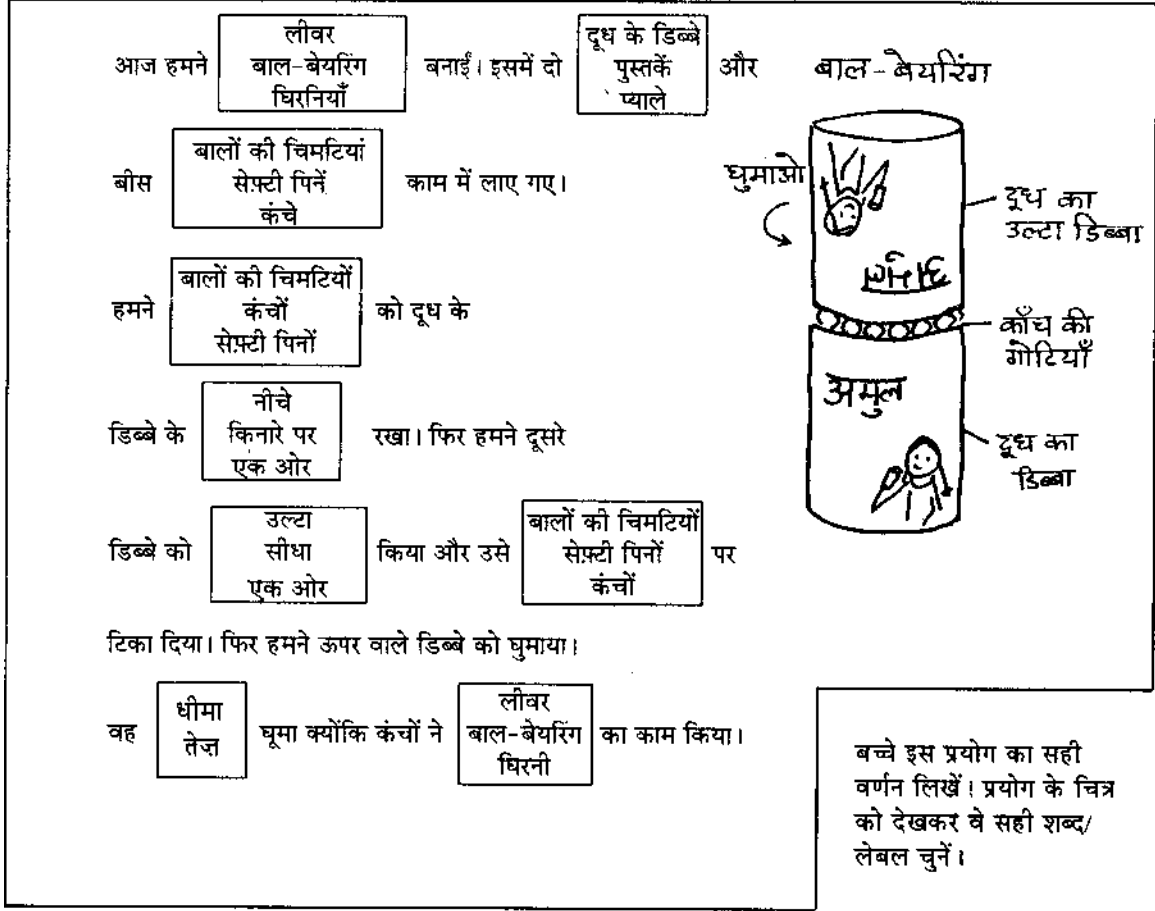 आज हमने
लीवर
बाल-बेयरिंग
घिरनियाँ
बनाईं। इसमें दो
दूध के डिब्बे
पुस्तकें
प्याले
और
बीस
बालों की चिमटियां
सेफ़्टी पिनें
कंचे
काम में लाए गए।
हमने
बालों की चिमटियों
कंचों
सेफ़्टी पिनों
को दूध के
डिब्बे के
नीचे
किनारे पर
एक ओर
रखा। फिर हमने दूसरे
डिब्बे को
उल्टा
सीधा
एक ओर
किया और उसे
बालों की चिमटियों
सेफ़्टी पिनों
कंचों
पर
टिका दिया। फिर हमने ऊपर वाले डिब्बे को घुमाया।
वह
धीमा
तेज़
घूमा क्योंकि कंचों ने
लीवर
बाल-बेयरिंग
घिरनी
का काम किया।
बाल-बेयरिंग
घुमाओ
दूध का
उल्टा डिब्बा
अमुल
काँच की
गोटियाँ
अमुल
दूध का
डिब्बा
बच्चे इस प्रयोग का सही
वर्णन लिखें। प्रयोग के चित्र
को देखकर वे सही शब्द/
लेबल चुनें।